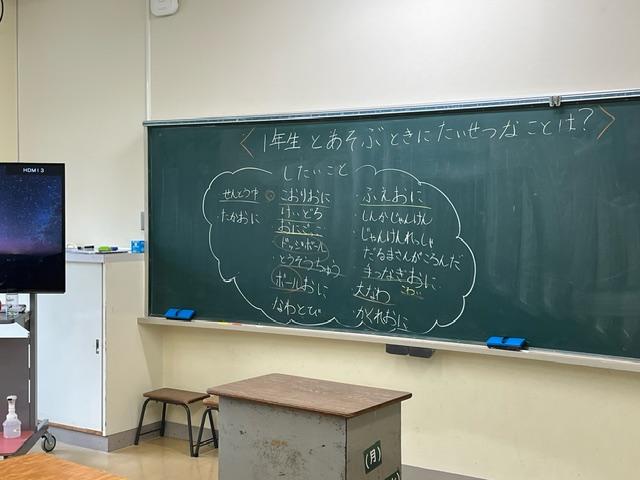 HDMI 3
<1年生とあそぶときにたいせつなことは?>
したいこと
せんとう中
・たかおに
・こおりおに
けいどろ
おにごっこ
ドッジボール
・とうそうちゅう
ボールおに
なわとび
・ふえおに
・しんかじゃんけん
・じゃんけんれっしゃ
だるまさんがころんだ
・まっなぎおに
・大なわ
こわい
・かくれおに
(月)